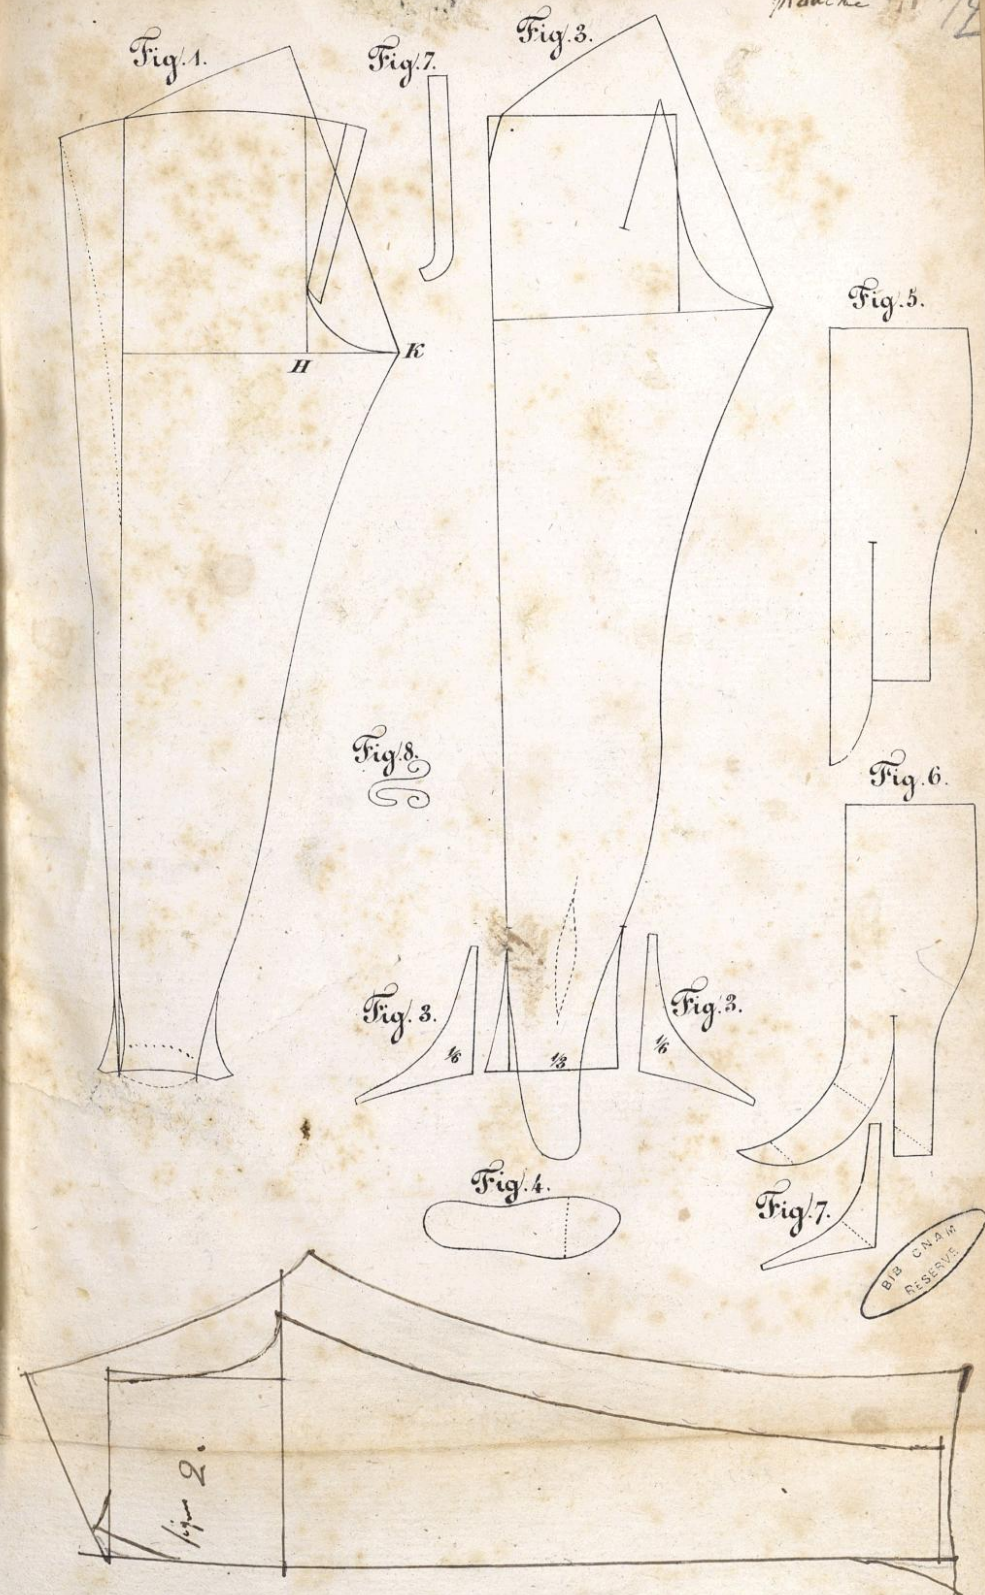 planche
Fig. 1.
Fig. 7.
Fig. 3.
H
K
Fig. 5.
Fig. 8.
Fig. 6.
Fig. 3.
1/6
1/3
1/6
Fig. 3.
Fig. 4.
Fig. 7.
BIB CNAM
RESERVE
figure 2.